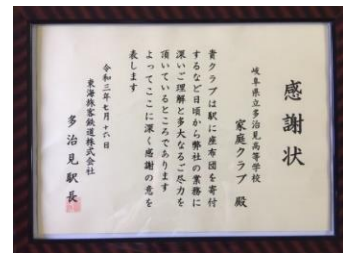 感謝状
岐阜県立多治見高等学校
家庭クラブ 殿
貴クラブは駅に座布団を寄付
するなど日頃から弊社の業務に
深いご理解と多大なるご尽力を
頂いているところであります
よってここに深く感謝の意を
表します
令和三年七月十六日
東海旅客鉄道株式会社
多治見駅長